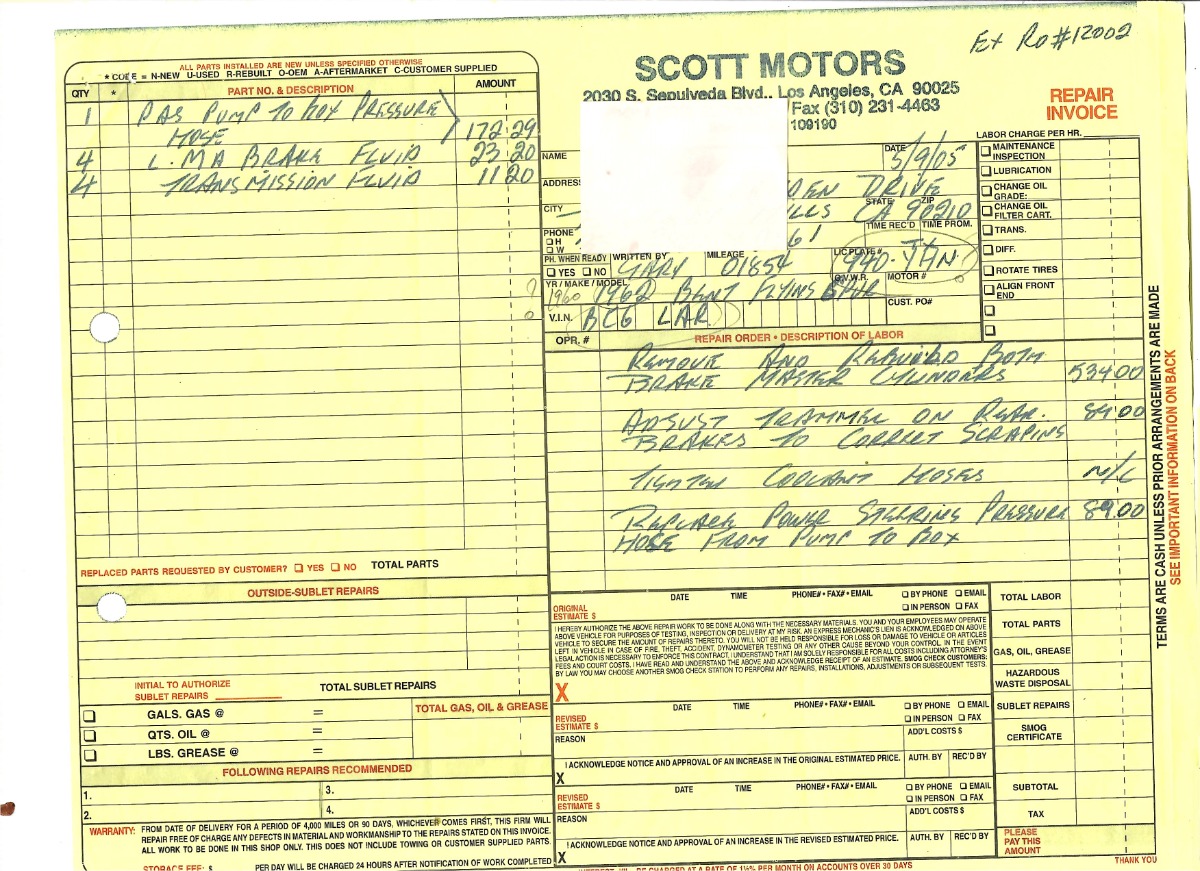 Ex Ro#12002
SCOTT MOTORS
2030 S. Sepulveda Blvd., Los Angeles, CA 90025
Fax (310) 231-4463
109190
REPAIR
INVOICE
ALL PARTS INSTALLED ARE NEW UNLESS SPECIFIED OTHERWISE
* CODE = N-NEW U-USED R-REBUILT O-OEM A-AFTERMARKET C-CUSTOMER SUPPLIED
QTY * PART NO. & DESCRIPTION AMOUNT
1 PAS PUMP TO BOX PRESSURE
HOSE 172 29
4 L.MA BRAKE FLUID 23 20
4 TRANSMISSION FLUID 11 20
REPLACED PARTS REQUESTED BY CUSTOMER? YES NO TOTAL PARTS
OUTSIDE-SUBLET REPAIRS
INITIAL TO AUTHORIZE
SUBLET REPAIRS TOTAL SUBLET REPAIRS
GALS. GAS @ = TOTAL GAS, OIL & GREASE
QTS. OIL @ =
LBS. GREASE @ =
FOLLOWING REPAIRS RECOMMENDED
1. 3.
2. 4.
WARRANTY: FROM DATE OF DELIVERY FOR A PERIOD OF 4,000 MILES OR 90 DAYS, WHICHEVER COMES FIRST, THIS FIRM WILL
REPAIR FREE OF CHARGE ANY DEFECTS IN MATERIAL AND WORKMANSHIP TO THE REPAIRS STATED ON THIS INVOICE.
ALL WORK TO BE DONE IN THIS SHOP ONLY. THIS DOES NOT INCLUDE TOWING OR CUSTOMER SUPPLIED PARTS.
STORAGE FEE: $ PER DAY WILL BE CHARGED 24 HOURS AFTER NOTIFICATION OF WORK COMPLETED
NAME DATE 5/9/05
ADDRESS DEN DRIVE
CITY LLS STATE CA ZIP 90210
PHONE H W 61 TIME REC'D TIME PROM.
PH. WHEN READY YES NO WRITTEN BY GARY MILEAGE 01854 LIC PLATE #
G.V.W.R. MOTOR #
YR / MAKE / MODEL 1960 1962 BENT FLYING SPUR CUST. PO#
V.I.N. BC6 LAR
OPR. # REPAIR ORDER • DESCRIPTION OF LABOR
LABOR CHARGE PER HR.
MAINTENANCE
INSPECTION
LUBRICATION
CHANGE OIL
GRADE:
CHANGE OIL
FILTER CART.
TRANS.
DIFF.
ROTATE TIRES
ALIGN FRONT
END
REMOVE AND REBUILD BOTH
BRAKE MASTER CYLINDERS 534 00
ADJUST TRAMMEL ON REAR 89 00
BRAKES TO CORRECT SCRAPING
TIGHTEN COOLANT HOSES N/C
REPLACE POWER STEERING PRESSURE 89 00
HOSE FROM PUMP TO BOX
ORIGINAL
ESTIMATE $ DATE TIME PHONE# • FAX# • EMAIL BY PHONE EMAIL
IN PERSON FAX
I HEREBY AUTHORIZE THE ABOVE REPAIR WORK TO BE DONE ALONG WITH THE NECESSARY MATERIALS. YOU AND YOUR EMPLOYEES MAY OPERATE
ABOVE VEHICLE FOR PURPOSES OF TESTING, INSPECTION OR DELIVERY AT MY RISK. AN EXPRESS MECHANIC'S LIEN IS ACKNOWLEDGED ON ABOVE
VEHICLE TO SECURE THE AMOUNT OF REPAIRS THERETO. YOU WILL NOT BE HELD RESPONSIBLE FOR LOSS OR DAMAGE TO VEHICLE OR ARTICLES
LEFT IN VEHICLE IN CASE OF FIRE, THEFT, ACCIDENT, DYNAMOMETER TESTING OR ANY OTHER CAUSE BEYOND YOUR CONTROL. IN THE EVENT
LEGAL ACTION IS NECESSARY TO ENFORCE THIS CONTRACT, I UNDERSTAND THAT I AM SOLELY RESPONSIBLE FOR ALL COSTS INCLUDING ATTORNEY'S
FEES AND COURT COSTS, I HAVE READ AND UNDERSTAND THE ABOVE AND ACKNOWLEDGE RECEIPT OF AN ESTIMATE. SMOG CHECK CUSTOMERS:
BY LAW YOU MAY CHOOSE ANOTHER SMOG CHECK STATION TO PERFORM ANY REPAIRS, INSTALLATIONS, ADJUSTMENTS OR SUBSEQUENT TESTS.
X
REVISED
ESTIMATE $ DATE TIME PHONE# • FAX# • EMAIL BY PHONE EMAIL
IN PERSON FAX
REASON ADD'L COSTS $
I ACKNOWLEDGE NOTICE AND APPROVAL OF AN INCREASE IN THE ORIGINAL ESTIMATED PRICE. AUTH. BY REC'D BY
X
REVISED
ESTIMATE $ DATE TIME PHONE# • FAX# • EMAIL BY PHONE EMAIL
IN PERSON FAX
REASON ADD'L COSTS $
I ACKNOWLEDGE NOTICE AND APPROVAL OF AN INCREASE IN THE REVISED ESTIMATED PRICE. AUTH. BY REC'D BY
X
TOTAL LABOR
TOTAL PARTS
GAS, OIL, GREASE
HAZARDOUS
WASTE DISPOSAL
SUBLET REPAIRS
SMOG
CERTIFICATE
SUBTOTAL
TAX
PLEASE
PAY THIS
AMOUNT
THANK YOU
BE CHARGED AT A RATE OF 1½% PER MONTH ON ACCOUNTS OVER 30 DAYS
TERMS ARE CASH UNLESS PRIOR ARRANGEMENTS ARE MADE
SEE IMPORTANT INFORMATION ON BACK